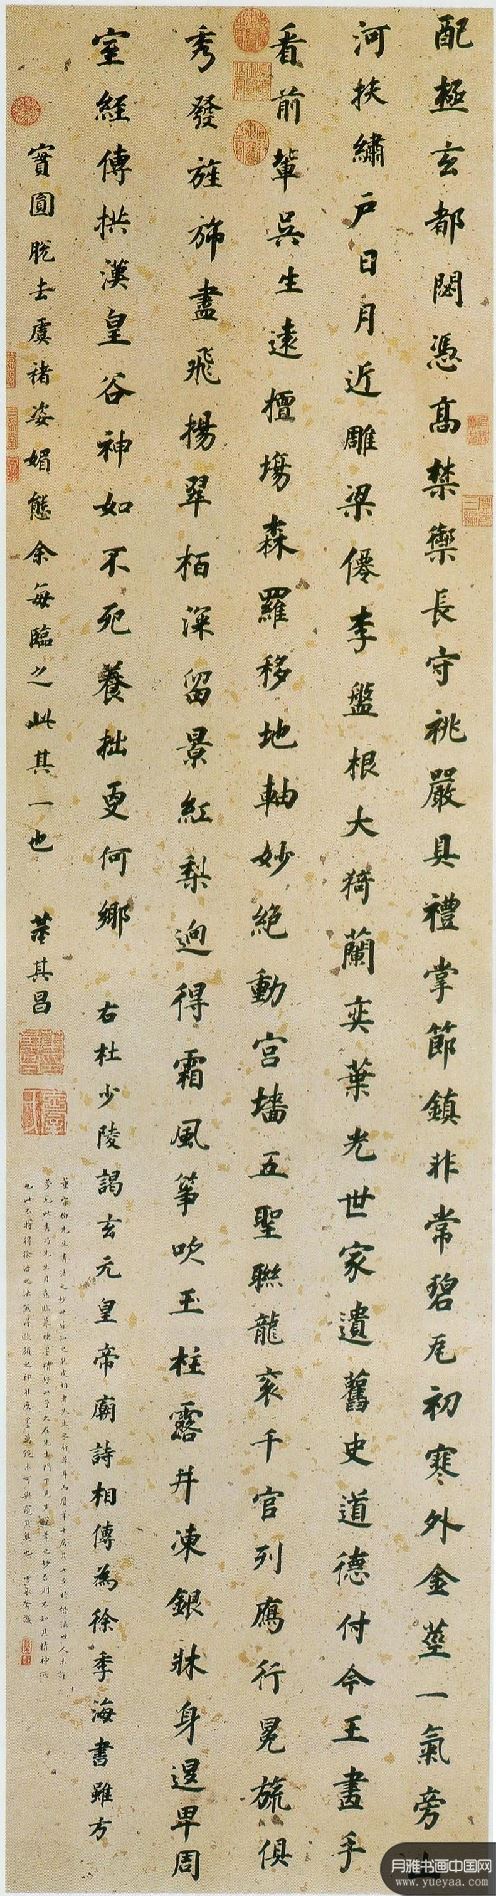 配極玄都閟憑高禁禦長守祧嚴具禮掌節鎮非常碧瓦初寒外金莖一氣旁山
河扶繡戶日月近雕梁僊李盤根大猗蘭奕葉光世家遺舊史道德付今王畫手
看前輩吳生遠擅塲森羅移地軸妙絕動宮墻五聖聯龍袞千官列鴈行冕旒俱
秀發旌旆盡飛楊翠栢深留景紅梨逈得霜風箏吹玉柱露井凍銀牀身退卑周
室經傳拱漢皇谷神如不死養拙更何鄉 右杜少陵謁玄元皇帝廟詩相傳為徐季海書雖方
實圓脫去虞褚姿媚態余每臨之此其一也 董其昌
月雅书画中国网
www.yueyaa.com